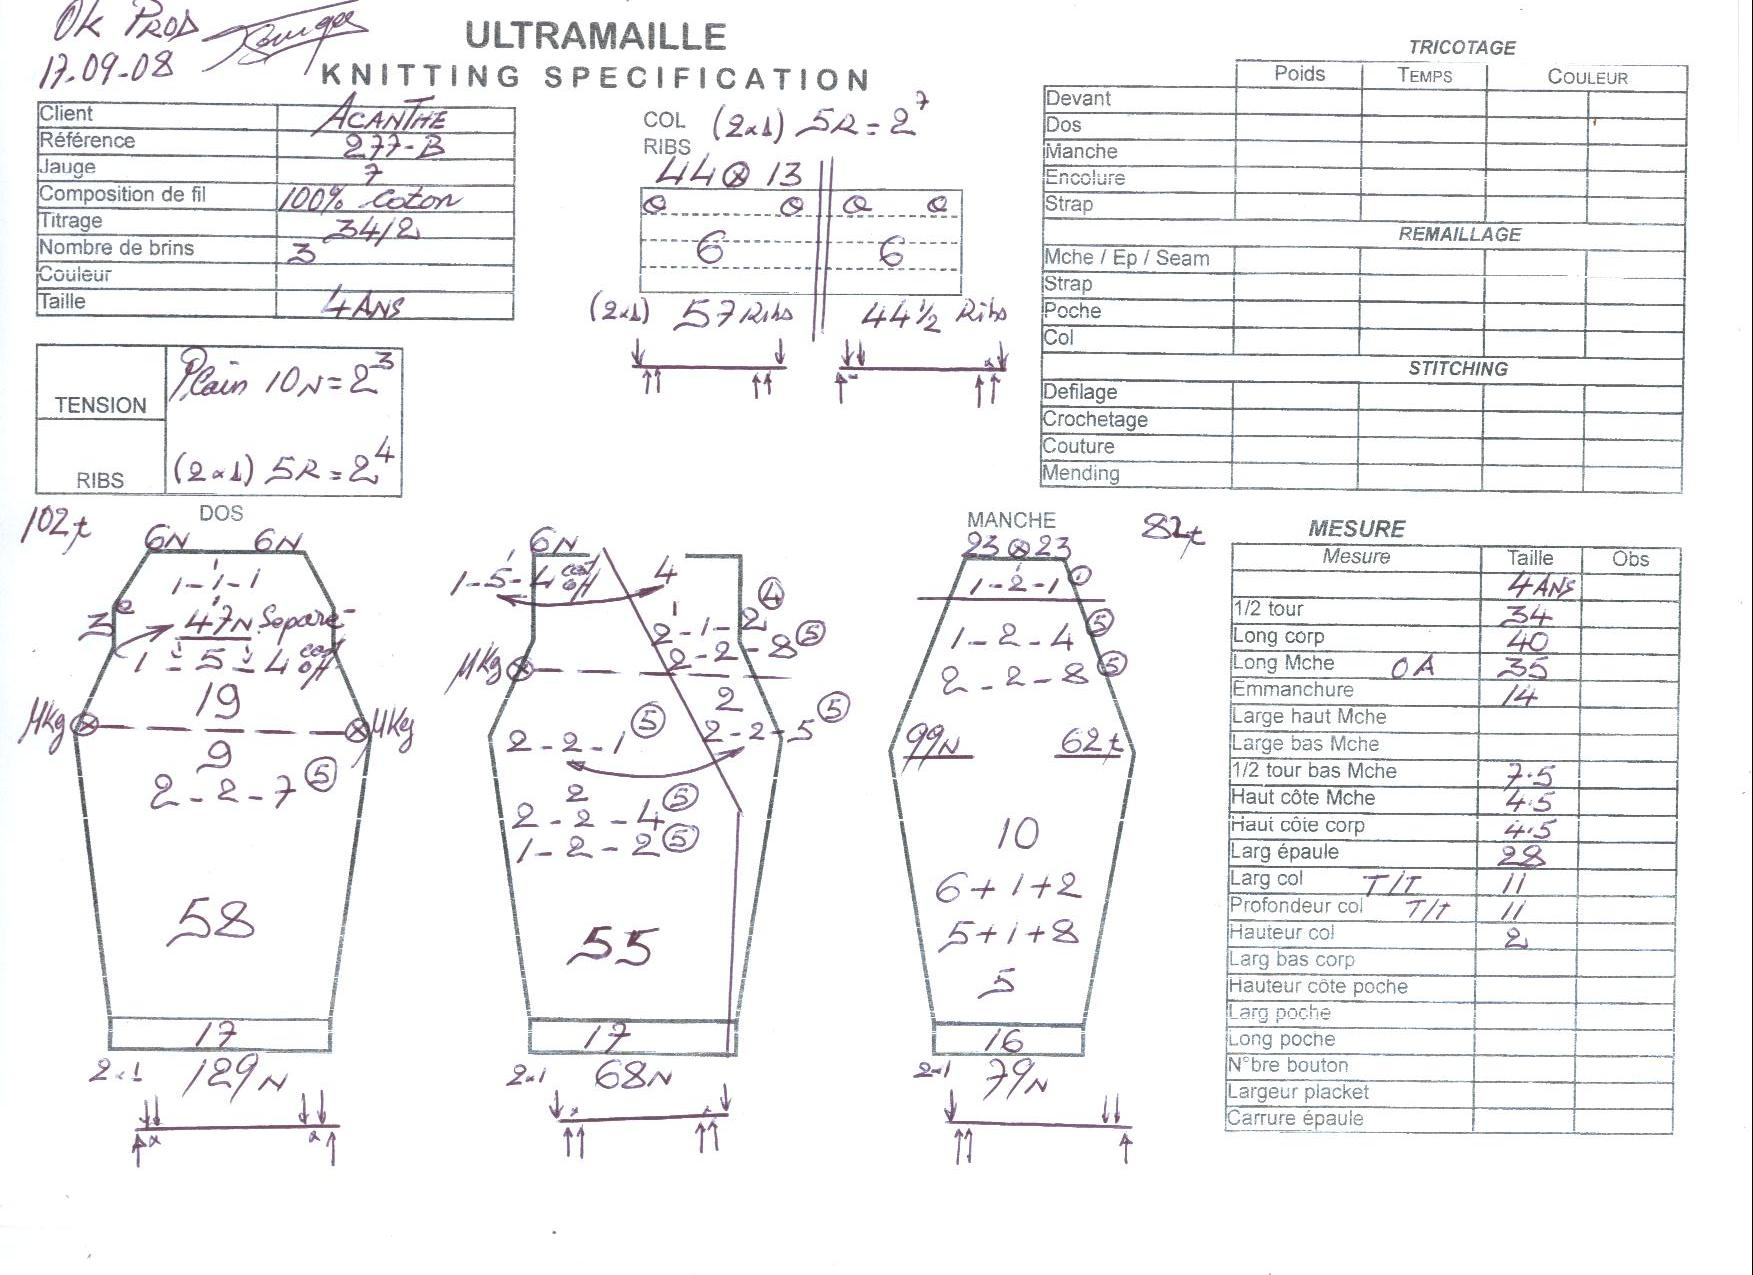 OK PROD
17.09-08
ULTRAMAILLE
KNITTING SPECIFICATION
Client ACANTHE
Référence 277-B
Jauge 7
Composition de fil 100% coton
Titrage 34/2
Nombre de brins 3
Couleur
Taille 4 ANS
TENSION Plain 10N = 2 3
RIBS (2x1) 5R = 2 4
COL (2x1) 5R = 2 7
RIBS
44 ⊗ 13
6 6
(2x1) 57 Ribs 44 1/2 Ribs
TRICOTAGE
Poids TEMPS COULEUR
Devant
Dos
Manche
Encolure
Strap
REMAILLAGE
Mche / Ep / Seam
Strap
Poche
Col
STITCHING
Defilage
Crochetage
Couture
Mending
102t
DOS
6N 6N
1-1-1
3
47N Separe
1-5-4 cast off
19
Mkg Mkg
9
2-2-7 (5)
58
17
2x1 129N
6N
1-5-4 cast off 4
2-1-2 (4)
2-2-8 (5)
Mkg
2
2-2-1 (5) 2-2-5 (5)
2
2-2-4 (5)
1-2-2 (5)
55
17
2x1 68N
MANCHE
82t
23 ⊗ 23
1-2-1
1-2-4 (5)
2-2-8 (5)
99N 62t
10
6+1+2
5+1+8
5
16
2x1 79N
MESURE
Mesure Taille Obs
4 ANS
1/2 tour 34
Long corp 40
Long Mche OA 35
Emmanchure 14
Large haut Mche
Large bas Mche
1/2 tour bas Mche 7.5
Haut côte Mche 4.5
Haut côte corp 4.5
Larg épaule 28
Larg col T/T 11
Profondeur col T/T 11
Hauteur col 2
Larg bas corp
Hauteur côte poche
Larg poche
Long poche
N°bre bouton
Largeur placket
Carrure épaule